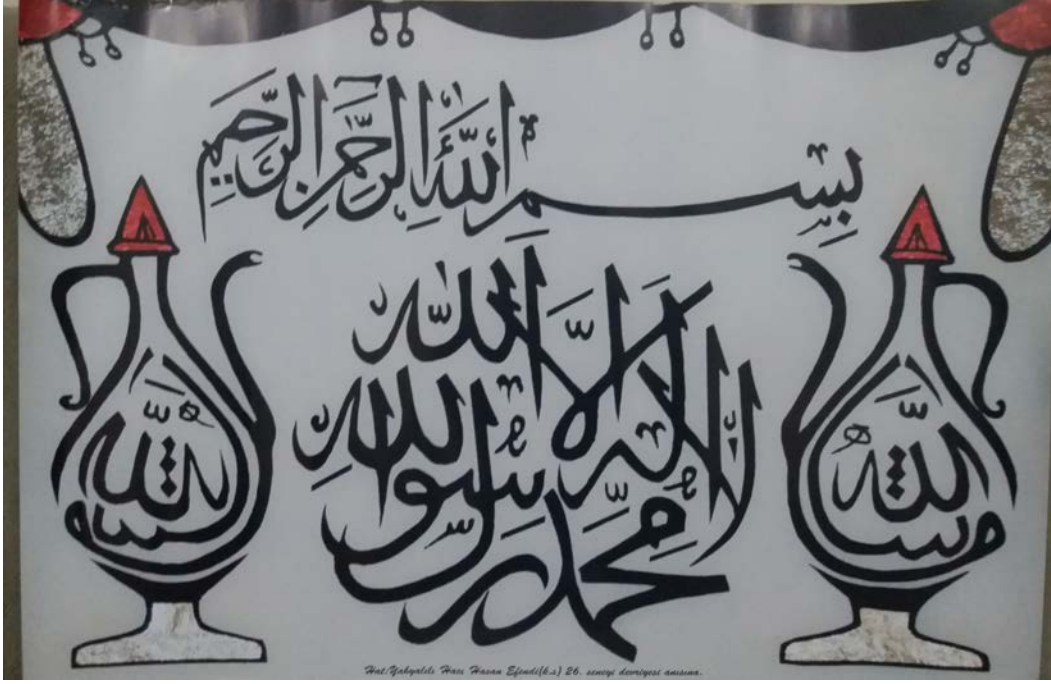 بِسْمِ اللَّهِ الرَّحْمَٰنِ الرَّحِيمِ
لا إله إلا الله
محمد رسول الله
Hat:Yahyalılı Hacı Hasan Efendi(k.s) 26. seneyi devriyesi anısına.